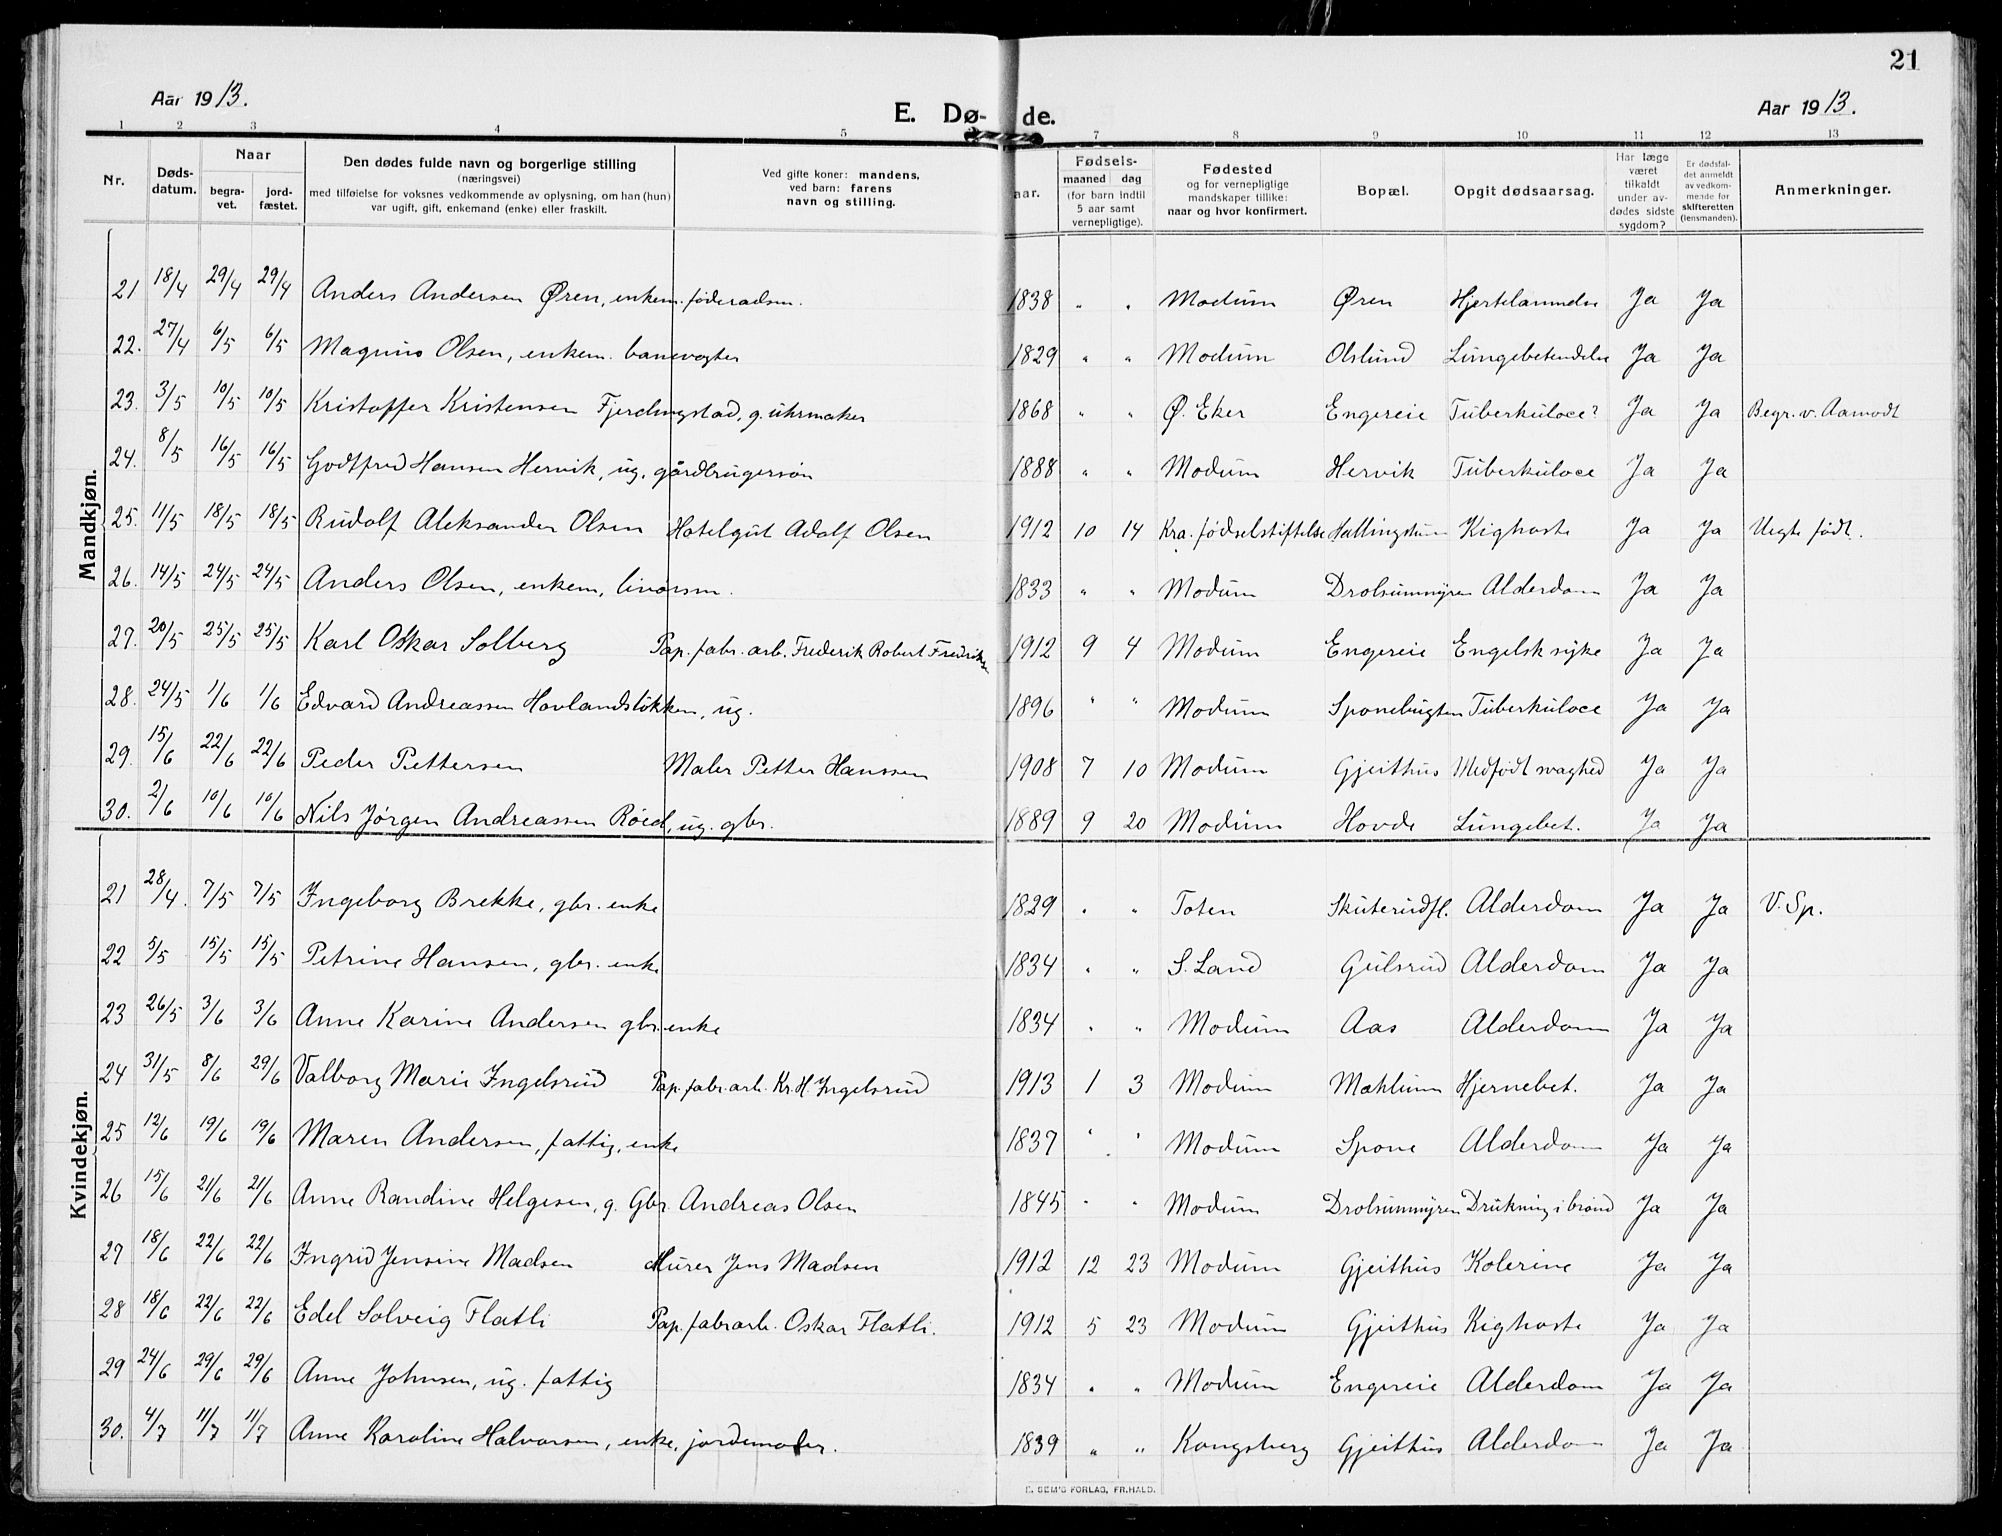 21
Aar 1913.
E. Dø- de.
Aar 1913.
1 2 3 4 5 7 8 9 10 11 12 13
Nr.
Døds-datum.
Naar
begra-vet.
jord-fæstet.
Den dødes fulde navn og borgerlige stilling
(næringsvei)
med tilføielse for voksnes vedkommende av oplysning, om han (hun)
var ugift, gift, enkemand (enke) eller fraskilt.
Ved gifte koner: mandens,
ved barn: farens
navn og stilling.
aar.
Fødsels-
maaned dag
(for barn indtil
5 aar samt
vernepligtige).
Fødested
og for vernepligtige
mandskaper tillike:
naar og hvor konfirmert.
Bopæl.
Opgit dødsaarsag.
Har læge
været
tilkaldt
under av-
dødes sidste
sygdom?
Er dødsfal-
det anmeldt
av vedkom-
mende for
skifteretten
(lensmanden).
Anmerkninger.
Mandkjøn.
21 18/4 29/4 29/4 Anders Andersen Øren, enkem. føderadsm. 1838 " " Modum Øren Hjertelammelse Ja Ja
22. 27/4 6/5 6/5 Magnus Olsen, enkem. banevogter 1829 " " Modum Olslund Lungebetendelse Ja Ja
23. 3/5 10/5 10/5 Kristoffer Kristensen Fjerdingstad, g. uhrmaker 1868 " " Ø. Eker Engereie Tuberkuloce? Ja Ja Begr. v. Aamodt
24. 8/5 16/5 16/5 Godtfred Hansen Hervik, ug. gårdbrugersøn 1888 " " Modum Hervik Tuberkuloce Ja Ja
25. 11/5 18/5 18/5 Rudolf Aleksander Olsen Hotelgut Adolf Olsen 1912 10 14 Kra. fødselstiftelse Kighoste Ja Ja Uegte født.
26. 14/5 24/5 24/5 Anders Olsen, enkem, livørsm. 1833 " " Modum Drolsummyren Alderdom Ja Ja
27. 20/5 25/5 25/5 Karl Oskar Solberg Pap. fabr. arb. Frederik Robert Fredriksen 1912 9 4 Modum Engereie Engelsk syke Ja Ja
28. 24/5 1/6 1/6 Edvard Andreassen Hovlandsløkken, ug. 1896 " " Modum Sponebugten Tuberkuloce Ja Ja
29. 15/6 22/6 22/6 Peder Pettersen Maler Petter Hanssen 1908 7 10 Modum Gjeithus Medfødt svaghed Ja Ja
30. 2/6 10/6 10/6 Nils Jørgen Andreassen Röed, ug. gbr. 1889 9 20 Modum Hovde Lungebet. Ja Ja
Kvindekjøn.
21 28/4. 7/5 7/5 Ingeborg Brekke, gbr. enke 1829 " " Toten Skuterudfl. Alderdom Ja Ja V. Sp.
22 5/5 15/5 15/5 Petrine Hansen, gbr. enke 1834 " " S. Land Gulsrud Alderdom Ja Ja
23 26/5 3/6 3/6 Anne Karine Andersen gbr. enke 1834 " " Modum Aas Alderdom Ja Ja
24 31/5 8/6 29/6 Valborg Marie Ingelsrud Pap. fabr arb. Kr. H. Ingelsrud 1913 1 3 Modum Mæhlum Hjernebet. Ja Ja
25 12/6 19/6 19/6 Maren Andersen, fattig, enke 1837 " " Modum Spone Alderdom Ja Ja
26 15/6 21/6 21/6 Anne Randine Helgesen, g. Gbr. Andreas Olsen 1845 " " Modum Drolsummyren Drukning i brønd Ja Ja
27 18/6 22/6 22/6 Ingrid Jensine Madsen Murer Jens Madsen 1912 12 23 Modum Gjeithus Kolerine Ja Ja
28 18/6 22/6 22/6 Edel Solveig Flatli Pap. fabr arb. Oskar Flatli. 1912 5 23 Modum Gjeithus Kighoste Ja Ja
29 24/6 29/6 29/6 Anne Johnsen, ug. fattig 1834 " " Modum Engereie Alderdom Ja Ja
30. 4/7 11/7 11/7 Anne Karoline Halvorsen, enke, jordemoder. 1839 " " Kongsberg Gjeithus Alderdom Ja Ja
E. SEM'S FORLAG, FR.HALD.